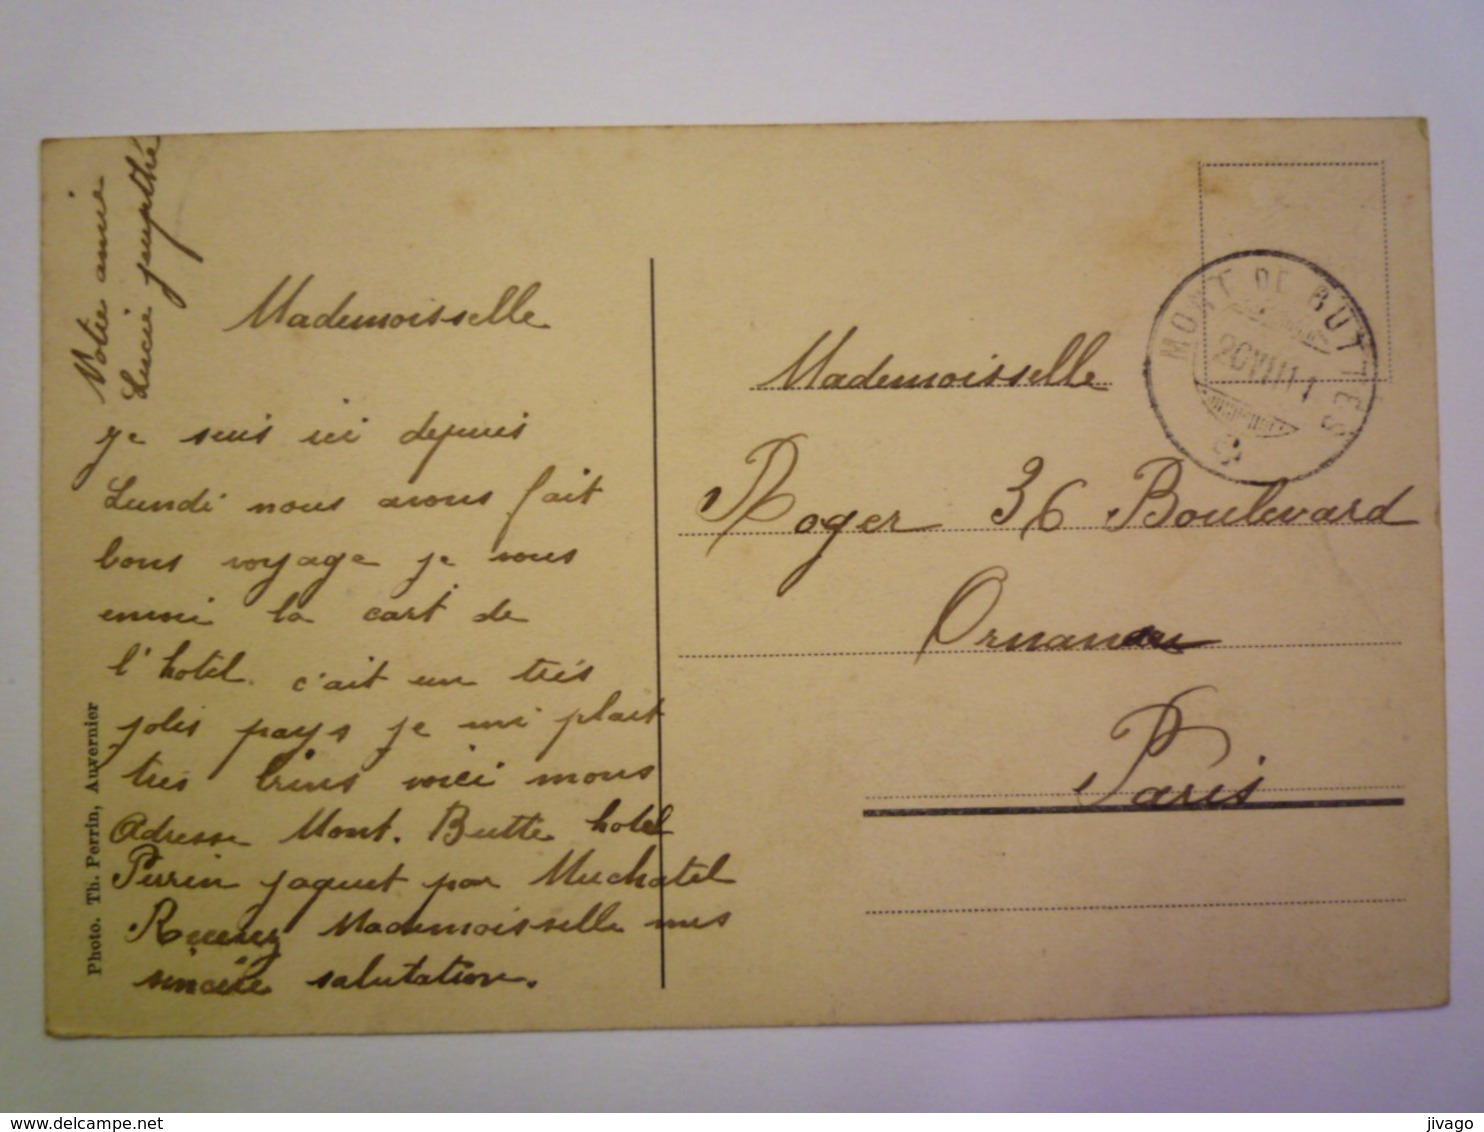 Votre amie
Lucie
Mademoisselle
Je suis ici depuis
Lundi nous avons fait
bons voyage je vous
envoi la cart de
l'hotel. c'ait un très
jolis pays je mi plait
tres biens voici mons
Adresse Mont. Butte hotel
Perrin Jaquet par Neuchatel
Recevez Mademoisselle mes
sincère salutation.
Photo. Th. Perrin, Auvernier
MONT DE BUTTES
Mademoisselle
Roger 36 Boulevard
Ornano
Paris
delcampe.net
jivago